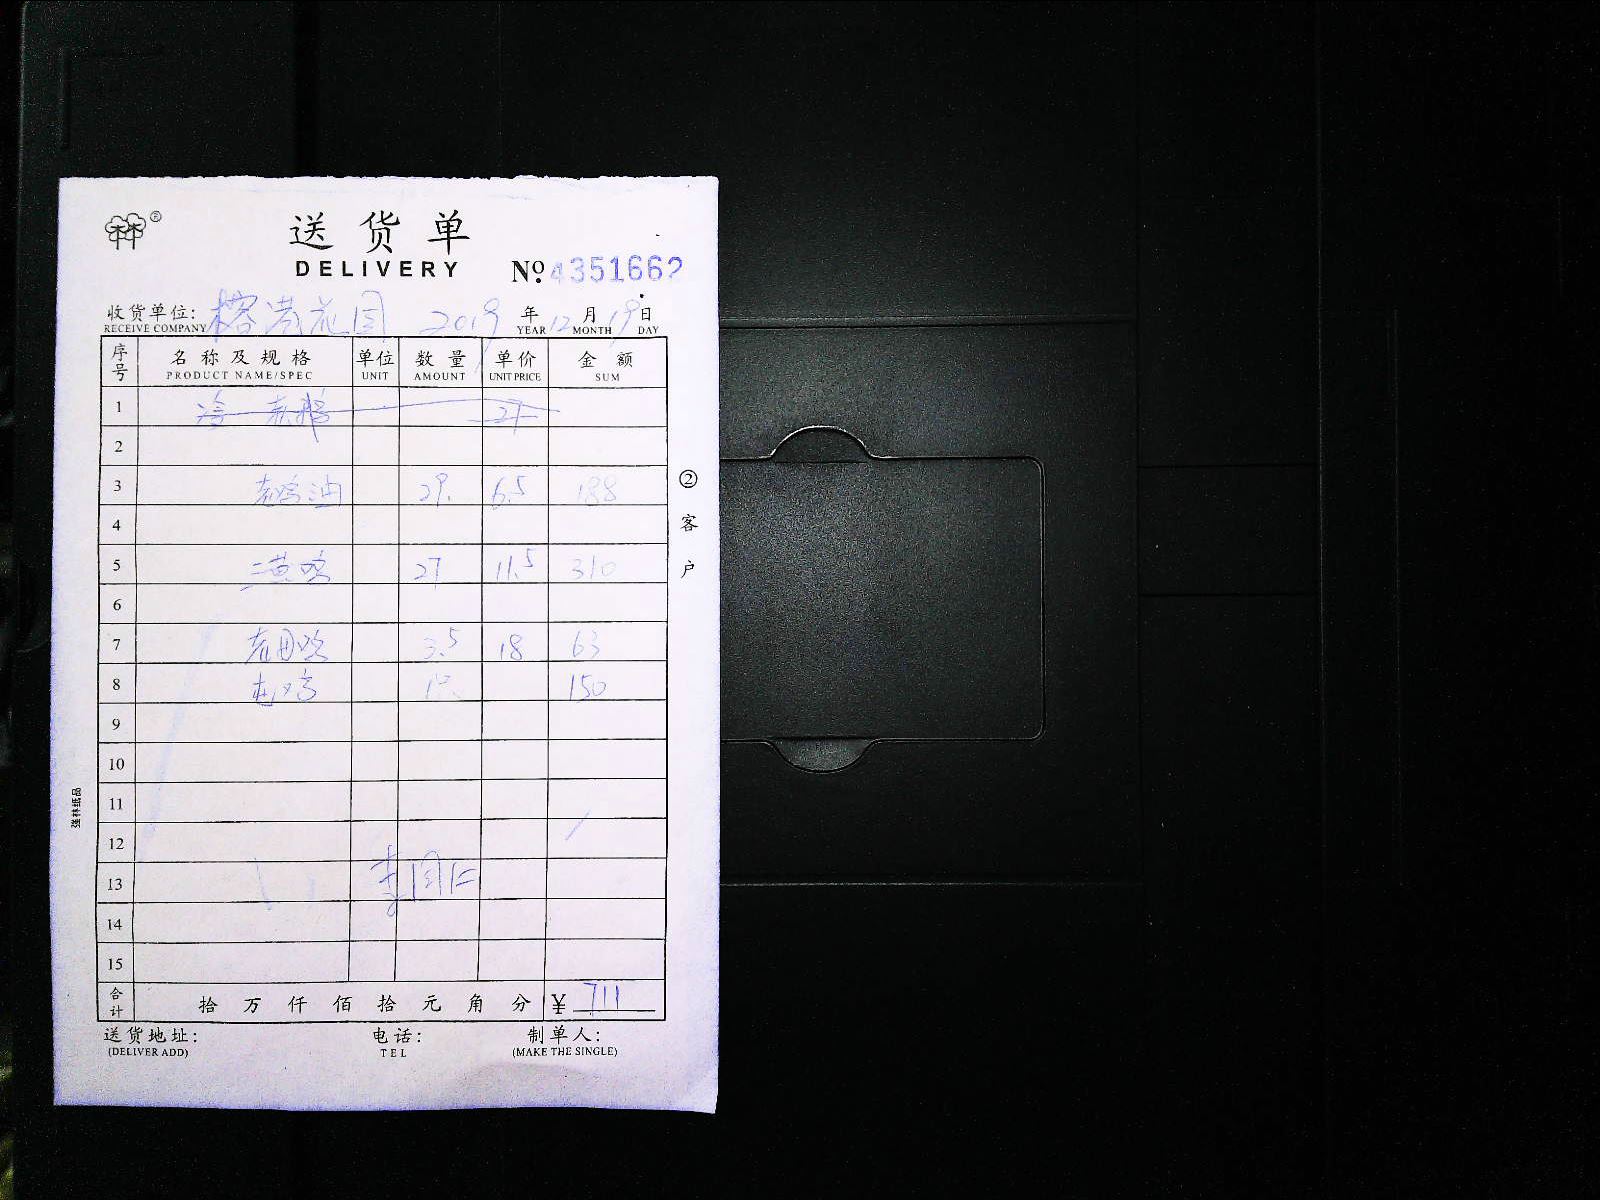 林®
送货单
DELIVERY
No. 4351662
收货单位: 榕港花园 2019 年 12 月 19 日
RECEIVE COMPANY YEAR MONTH DAY
序号 名称及规格 单位 数量 单价 金额
PRODUCT NAME/SPEC UNIT AMOUNT UNIT PRICE SUM
1 27
2
3 29. 6.5 188
4
5 三黄鸡 27 11.5 310
6
7 3.5 18 63
8 150
9
10
11
12
13
14
15
合计 拾 万 仟 佰 拾 元 角 分 ¥ 711
送货地址: 电话: 制单人:
(DELIVER ADD) TEL (MAKE THE SINGLE)
②客户
强林纸品